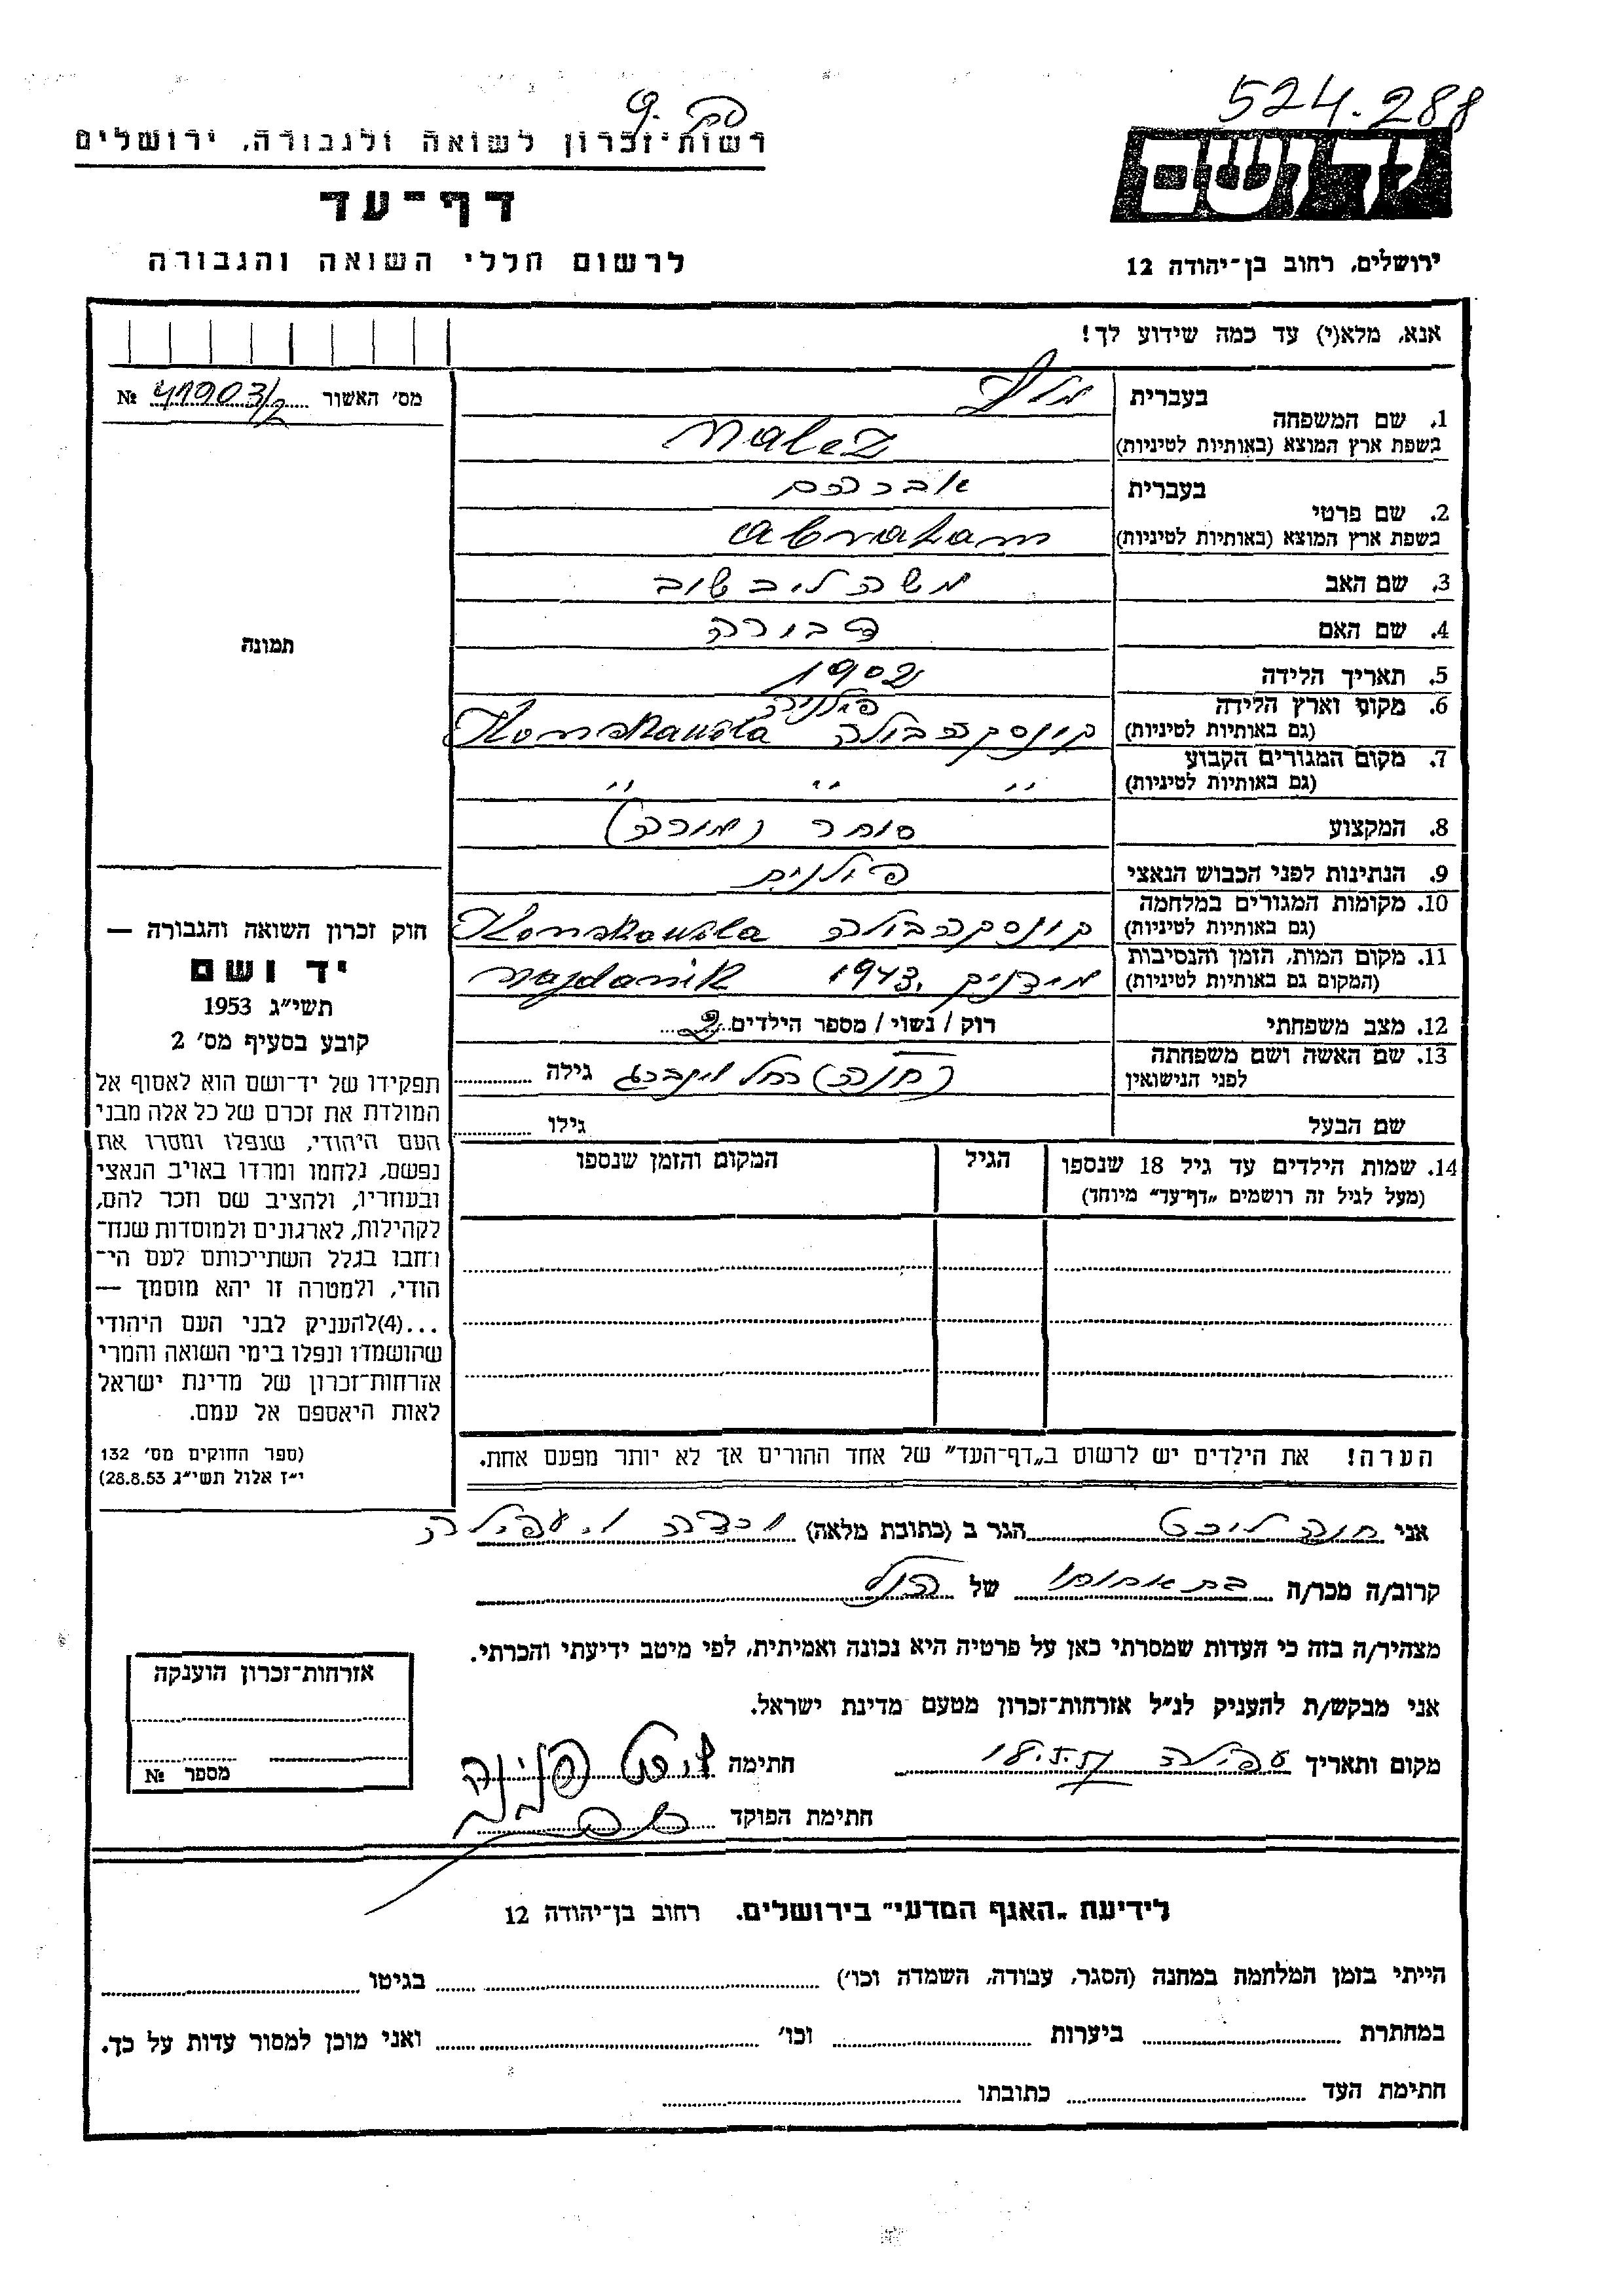 524.288
רשות־זכרון לשואה ולגבורה, ירושלים
יד ושם
דף־עד
לרשום חללי השואה והגבורה
ירושלים, רחוב בן־יהודה 12
אנא, מלא(י) עד כמה שידוע לך!
מס׳ האשור № 41903/2
תמונה
1. שם המשפחה
בעברית
בשפת ארץ המוצא (באותיות לטיניות) Malez
2. שם פרטי
בעברית אברהם
בשפת ארץ המוצא (באותיות לטיניות) Abraham
3. שם האב משה ליב
4. שם האם דבורה
5. תאריך הלידה 1902
6. מקום וארץ הלידה פולניה
(גם באותיות לטיניות) קונסקהבולה Konskawola
7. מקום המגורים הקבוע
(גם באותיות לטיניות) " " "
8. המקצוע סוחר
9. הנתינות לפני הכבוש הנאצי פולנית
10. מקומות המגורים במלחמה
(גם באותיות לטיניות) קונסקהבולה Konskowola
11. מקום המות, הזמן והנסיבות
(המקום גם באותיות לטיניות) מידניק 1943, Majdanik
12. מצב משפחתי רוק / נשוי / מספר הילדים 2
13. שם האשה ושם משפחתה
לפני הנישואין (חנה) רחל גילה
שם הבעל גילו
14. שמות הילדים עד גיל 18 שנספו
(מעל לגיל זה רושמים „דף־עד” מיוחד)
הגיל
המקום והזמן שנספו
הערה! את הילדים יש לרשום ב„דף־העד” של אחד ההורים אך לא יותר מפעם אחת.
חוק זכרון השואה והגבורה —
יד ושם
תשי״ג 1953
קובע בסעיף מס׳ 2
תפקידו של יד־ושם הוא לאסוף אל
המולדת את זכרם של כל אלה מבני
העם היהודי, שנפלו ומסרו את
נפשם, נלחמו ומרדו באויב הנאצי
ובעוזריו, ולהציב שם וזכר להם,
לקהילות, לארגונים ולמוסדות שנח־
רבו בגלל השתייכותם לעם הי־
הודי, ולמטרה זו יהא מוסמך —
...(4)להעניק לבני העם היהודי
שהושמדו ונפלו בימי השואה והמרי
אזרחות־זכרון של מדינת ישראל
לאות היאספם אל עמם.
(ספר החוקים מס׳ 132
י״ז אלול תשי״ג 28.8.53)
אני ליכט הגר ב (כתובת מלאה) עפולה
קרוב/ה מכר/ה בת אחותו של הנ״ל
מצהיר/ה בזה כי העדות שמסרתי כאן על פרטיה היא נכונה ואמיתית, לפי מיטב ידיעתי והכרתי.
אני מבקש/ת להעניק לנ״ל אזרחות־זכרון מטעם מדינת ישראל.
מקום ותאריך עפולה חתימה
חתימת הפוקד
אזרחות־זכרון הוענקה
מספר №
לידיעת „האגף המדעי” בירושלים. רחוב בן־יהודה 12
הייתי בזמן המלחמה במחנה (הסגר, עבודה, השמדה וכו׳) בגיטו
במחתרת ביערות וכו׳ ואני מוכן למסור עדות על כך.
חתימת העד כתובתו